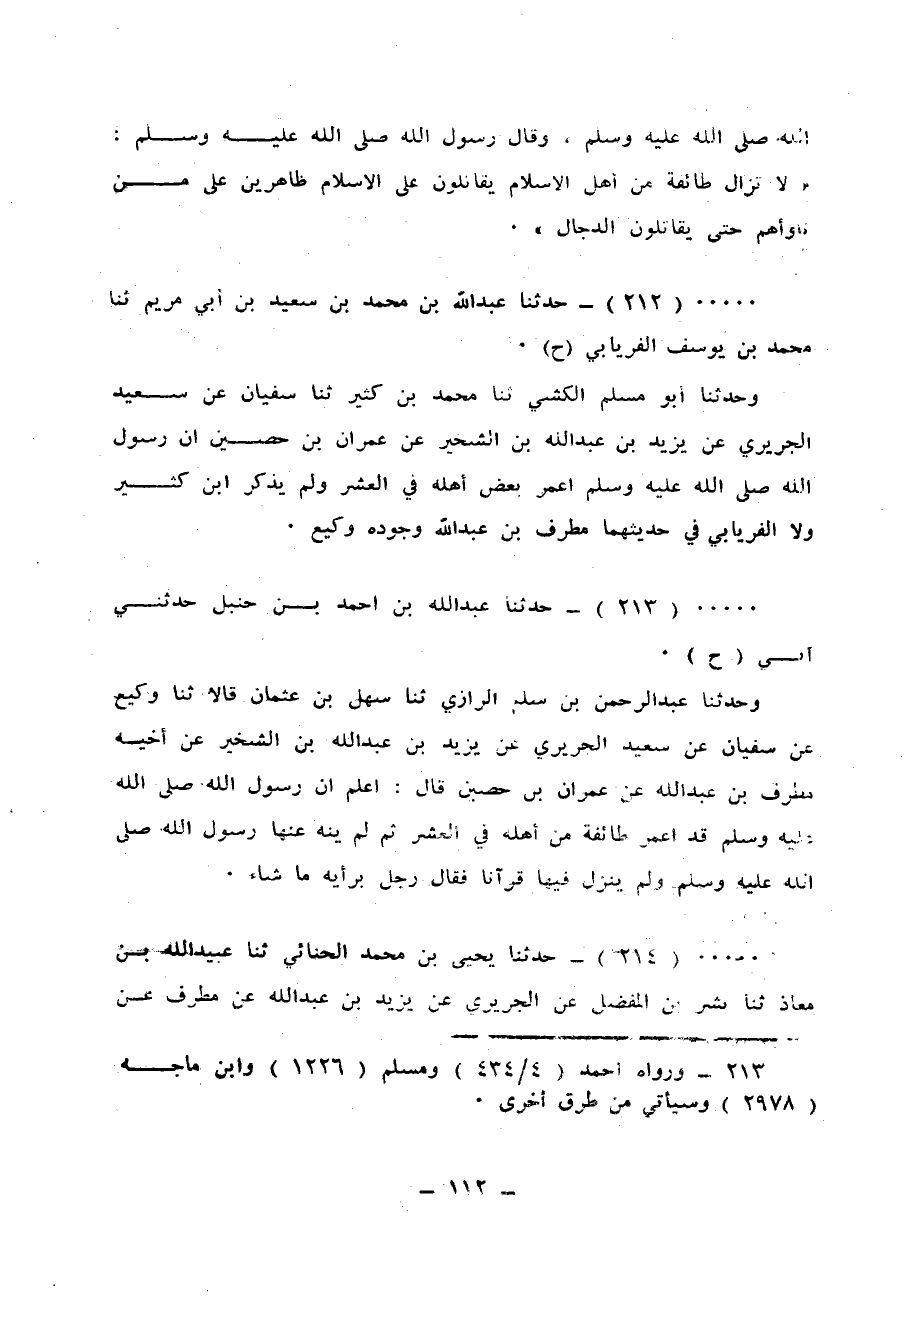 الله صلى الله عليه وسلم ، وقال رسول الله صلى الله عليه وسلم :
« لا تزال طائفة من أهل الاسلام يقاتلون على الاسلام ظاهرين على من
ناوأهم حتى يقاتلون الدجال » ٠
٠٠٠٠٠ ( ٢١٢ ) ـ حدثنا عبدالله بن محمد بن سعيد بن أبي مريم ثنا
محمد بن يوسف الفريابي (ح) ٠
وحدثنا أبو مسلم الكشي ثنا محمد بن كثير ثنا سفيان عن سعيد
الجريري عن يزيد بن عبدالله بن الشخير عن عمران بن حصين ان رسول
الله صلى الله عليه وسلم اعمر بعض أهله في العشر ولم يذكر ابن كثير
ولا الفريابي في حديثهما مطرف بن عبدالله وجوده وكيع ٠
٠٠٠٠٠ ( ٢١٣ ) ـ حدثنا عبدالله بن احمد بن حنبل حدثني
أبي ( ح ) ٠
وحدثنا عبدالرحمن بن سلم الرازي ثنا سهل بن عثمان قالا ثنا وكيع
عن سفيان عن سعيد الجريري عن يزيد بن عبدالله بن الشخير عن أخيه
مطرف بن عبدالله عن عمران بن حصين قال : اعلم ان رسول الله صلى الله
عليه وسلم قد اعمر طائفة من أهله في العشر ثم لم ينه عنها رسول الله صلى
الله عليه وسلم ولم ينزل فيها قرآنا فقال رجل برأيه ما شاء ٠
٠٠٠٠٠ ( ٢١٤ ) ـ حدثنا يحيى بن محمد الحنائي ثنا عبيدالله بن
معاذ ثنا بشر بن المفضل عن الجريري عن يزيد بن عبدالله عن مطرف عن
٢١٣ ـ ورواه احمد ( ٤/٤٣٤ ) ومسلم ( ١٢٢٦ ) وابن ماجه
( ٢٩٧٨ ) وسيأتي من طرق أخرى ٠
ـ ١١٢ ـ